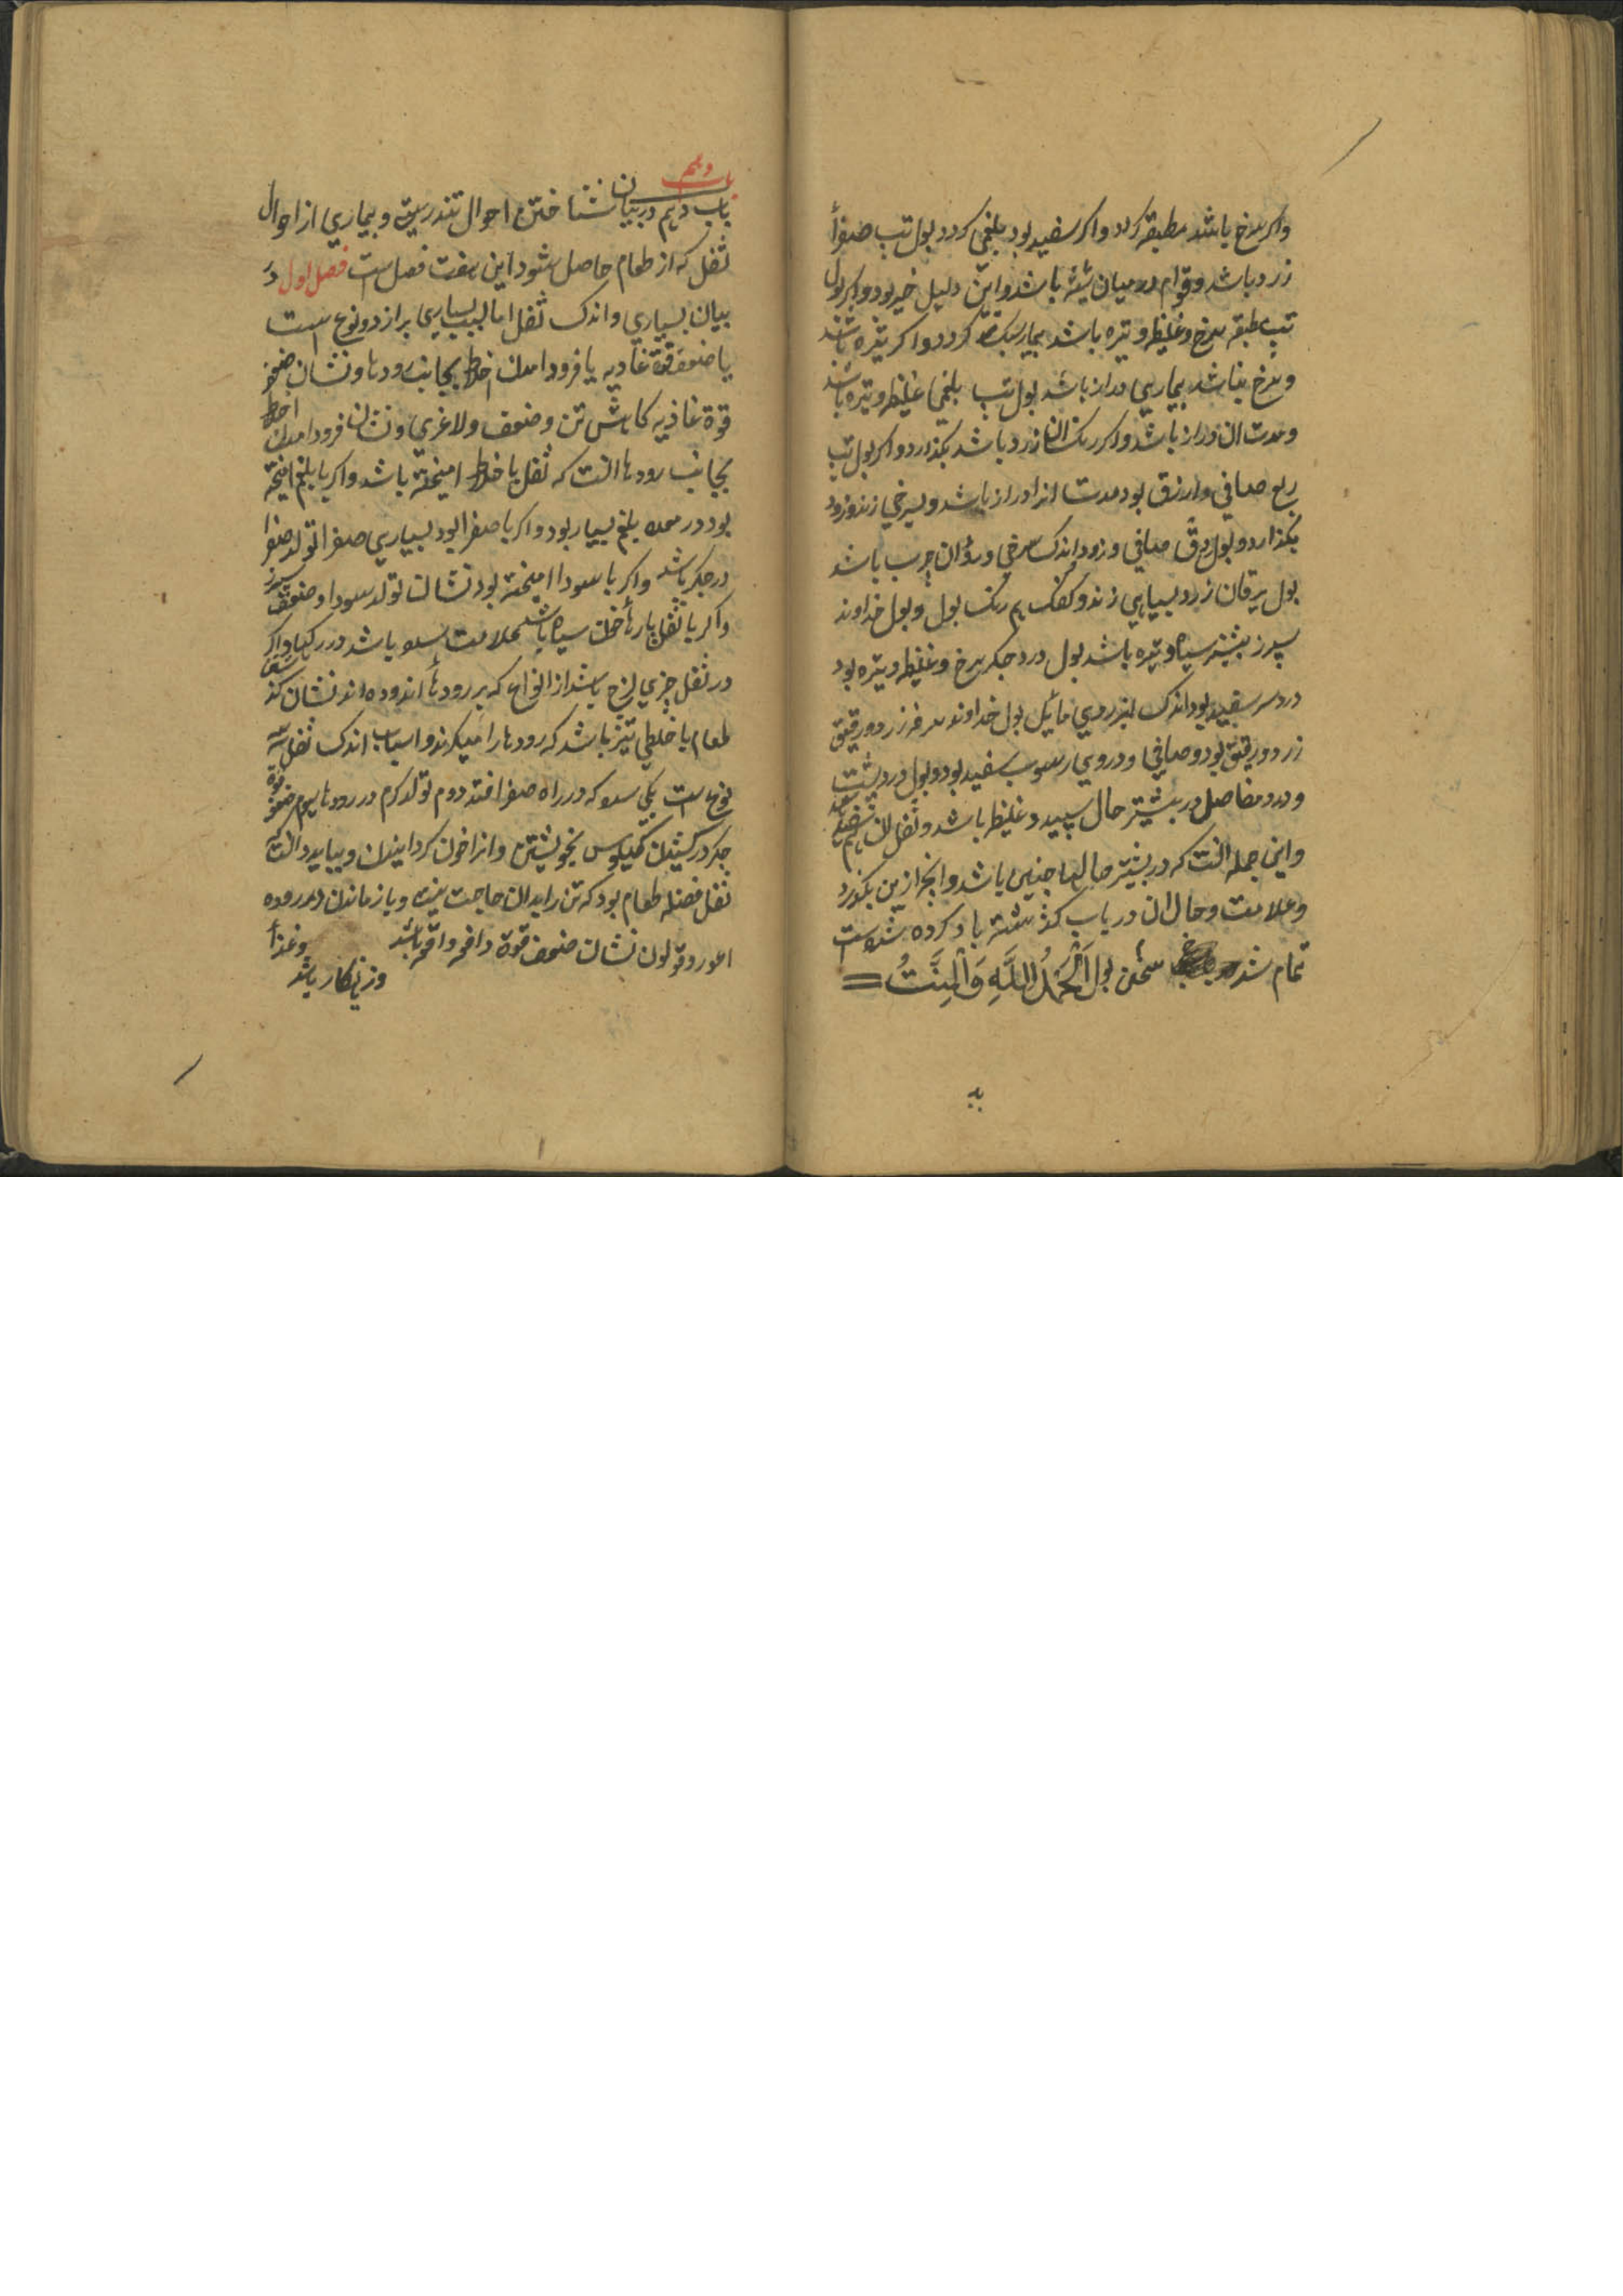 واکر سرخ باشد مطبقه کردد واکر سفید بود بلغمی کردد بول تب صفرأ
زرد باشد وقوام در میان شیشه باشد واین دلیل خیر بود واکر بول
تب مطبقه سرخ وغلیظ وتیره باشد بیمار سبک کردد واکر تیره باشد
وسرخ نباشد بیماری دراز باشد بول تب بلغمی غلیظ وتیره باشد
ومدت ان دراز باشد واکر رنک ان زرد باشد بکذارد واکر بول تب
ربع صافی وازرق بود مدت انرا دراز باشد وبسرخی زند وزود
بکذارد وبول دق صافی وزرد اندک سرخی وبدو ان چرب باشد
بول یرقان زرد بسیاهی زند وکفک هم رنک بول وبول خداوند
سپرز بیشتر سیاه وتیره باشد بول درد جکر سرخ وغلیظ وتیره بود
درد سر سفید بود اندک بزردی مایل بول خداوند سرفه زرد ورقیق
زرد ورقیق بود وصافی ودروی رسوب سفید بود وبول درد پشت
ودرد مفاصل در بیشتر حال سپید وغلیظ باشد وثفل ان هم
واین جمله انست که در بیشتر حالها چنین باشد وانچه ازین بکذرد
وعلامت وحال ان در باب کذشته یاد کرده شده است
تمام شد سخن بول اَلْحَمْدُ لِلَّهِ وَالْمِنَّتُ
به
باب دهم
باب دهم در بیان شناختن احوال تندرستی وبیماری از احوال
ثفل که از طعام حاصل شود این هفت فصل است فصل اول در
بیان بسیاری واندک ثفل اما سبب بسیاری براز دو نوع است
یا ضعف قوة غاذیه یا فرود امدن اخلاط بجانب رودها ونشان ضعف
قوة غاذیه کاهش تن وضعف ولاغری ونشان فرود امدن اخلاط
بجانب رودها انست که ثفل با خلط امیخته باشد واکر با بلغم امیخته
بود در معده بلغم بسیار بود واکر با صفرا بود بسیاری صفرا تولد صفرا
در جکر باشد واکر با سودا امیخته بود نشان تولد سودا وضعف سپرز
واکر با ثفل پارهأ خون سیاه باشد علامت سده باشد در رکها واکر
در ثفل چیزی لزج باشد از انواع که بر رودهأ اندوده اند نشان کند
طعام یا خلطی تیز باشد که رودها را میکزند واسباب اندک ثفل سه
نوع است یکی سده که در راه صفرا افتد دوم تولد کرم در رودها سیوم ضعف قوة
جکر در کشیدن کیلوس بخویشتن وانرا خون کردانیدن وبباید دانست که
ثفل فضله طعام بود که تن را بدان حاجت نیست وباز ماندن در روده
اعور وقولون نشان ضعف قوة دافعه واقعه باشد وغذأ
وزنهکار باشد